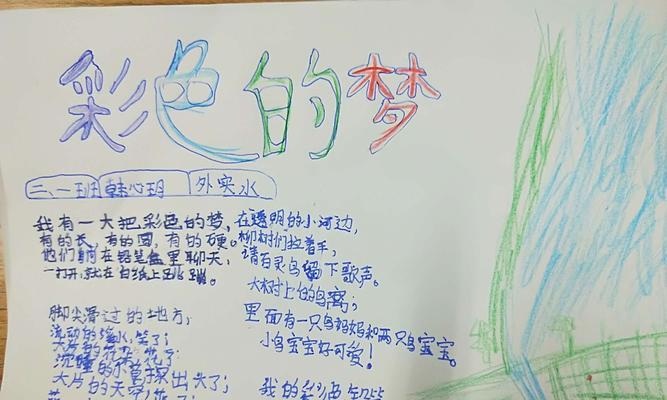 彩色的梦
二、一班 韩心玥 外实水
我有一大把彩色的梦,
有的长,有的圆,有的硬。
他们躺在铅笔盒里聊天,
一打开,就在白纸上跳蹦。
脚尖滑过的地方,
流动的 水,笑了;
大片的 了;
沉睡的 草探出头了;
大片的天 了;
在透明的小河边,
柳树们拉着手,
请百灵鸟留下歌声。
大树上的鸟窝;
里面有一只鸟妈妈和两只鸟宝宝。
小鸟宝宝好可爱!
我的彩色铅笔